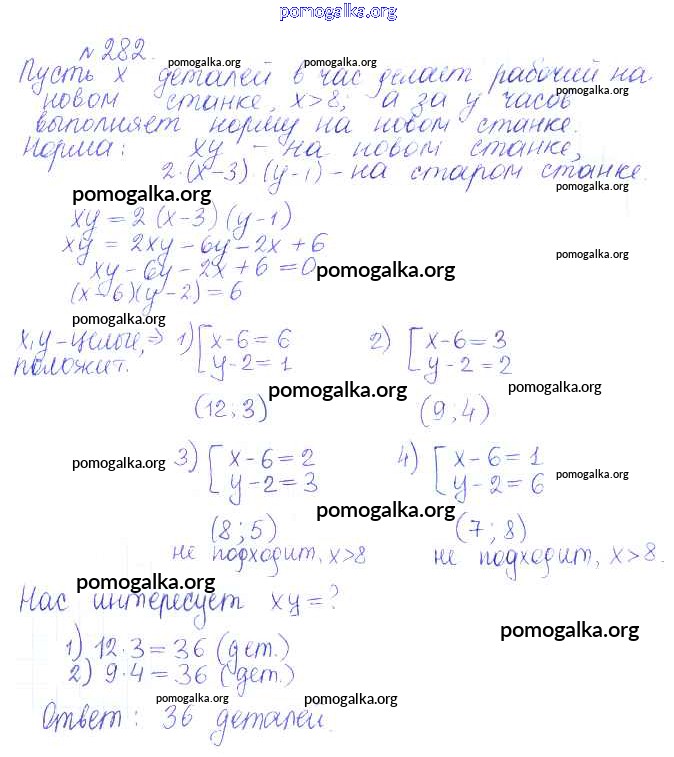 pomogalka.org
№ 282.
pomogalka.org pomogalka.org
Пусть x деталей в час делает рабочий на
pomogalka.org
новом станке, x>8; а за y часов
выполняет норму на новом станке.
pomogalka.org pomogalka.org
Норма: xy – на новом станке,
2·(x-3)(y-1) – на старом станке.
pomogalka.org
pomogalka.org
xy = 2(x-3)(y-1)
xy = 2xy - 6y - 2x + 6
pomogalka.org
xy - 6y - 2x + 6 = 0
pomogalka.org
(x-6)(y-2) = 6
pomogalka.org
x, y – целые, ⇒ 1) [ x-6=6 2) [ x-6=3
положит. y-2=1 y-2=2
pomogalka.org pomogalka.org
(12; 3) (9; 4)
pomogalka.org 3) [ x-6=2 4) [ x-6=1
y-2=3 y-2=6 pomogalka.org
pomogalka.org
(8; 5) (7; 8)
не подходит, x>8 не подходит, x>8.
pomogalka.org
Нас интересует xy=?
pomogalka.org
1) 12·3=36 (дет.)
2) 9·4=36 (дет.)
pomogalka.org pomogalka.org
Ответ: 36 деталей.